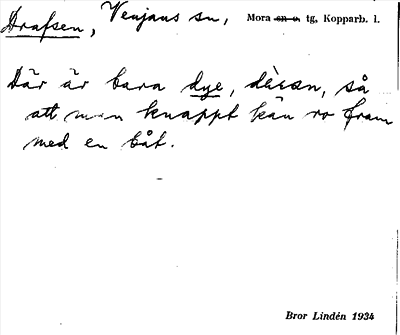 Drafsen, Venjans sn, Mora sn o. tg, Kopparb. l.
Där är bara dye, dèran, så
att man knappt kan ro fram
med en båt.
Bror Lindén 1934